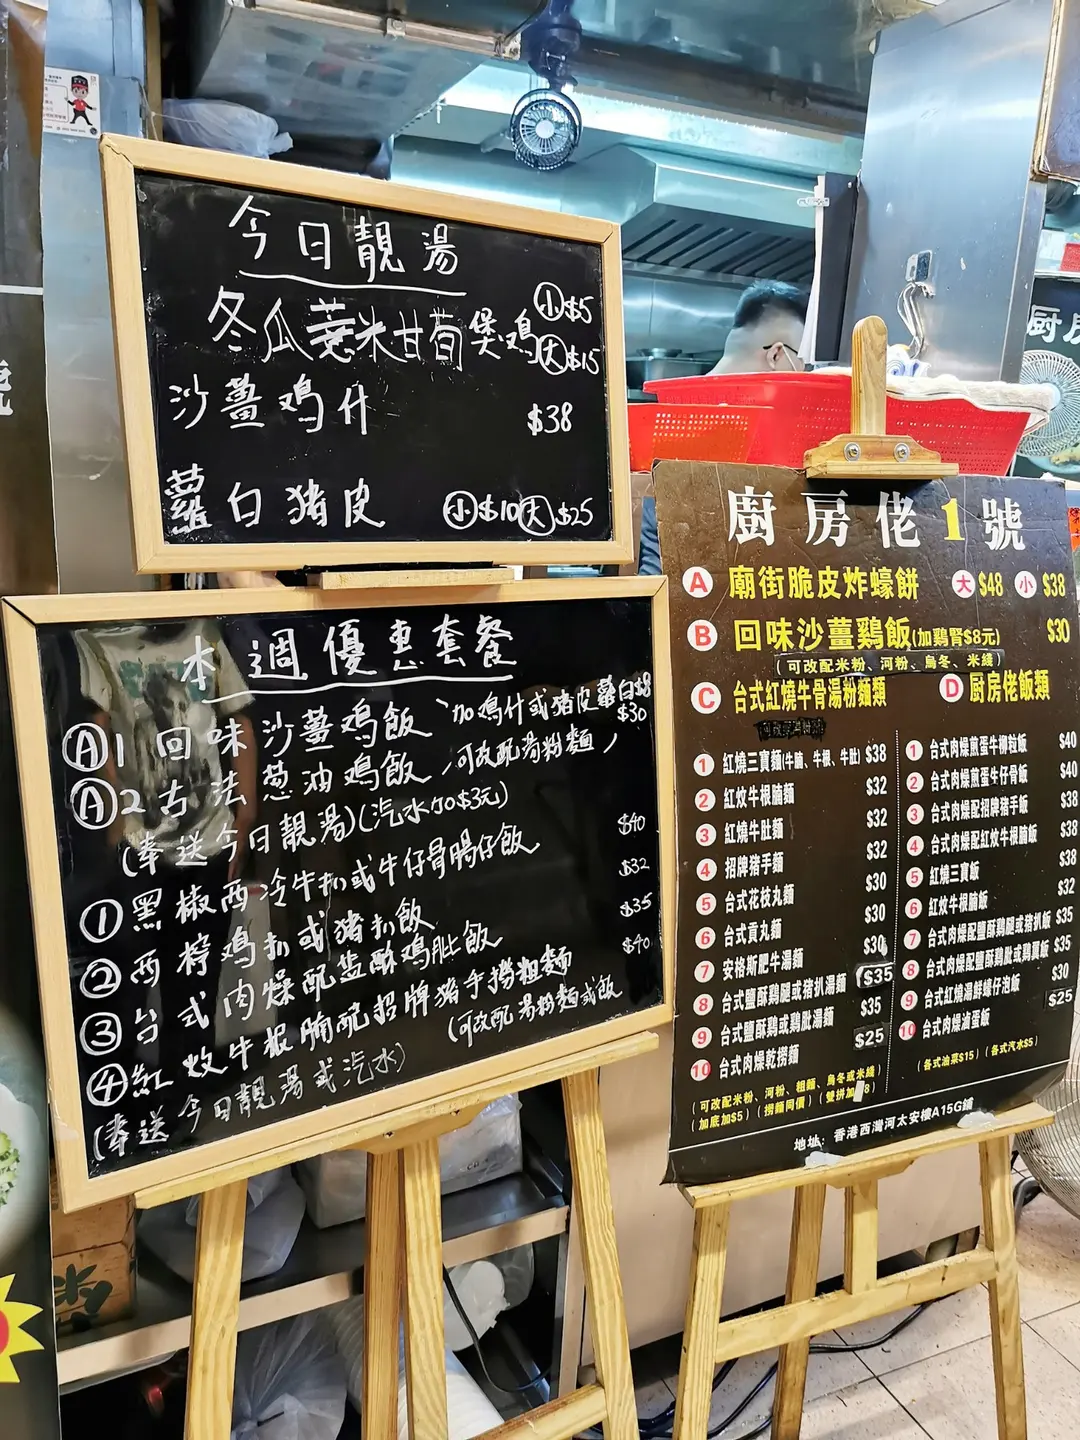 今日靚湯
冬瓜薏米甘荀煲鸡 小$5 大$15
沙薑鸡什 $38
蘿白猪皮 小$10 大$25
本週優惠套餐
A1 回味沙薑鸡飯、加鸡什或猪皮蘿白$8 $30
A2 古法葱油鸡飯，可改配湯粉麵
(奉送今日靚湯)(汽水加$3元)
① 黑椒西冷牛扒或牛仔骨腸仔飯 $40
② 西檸鸡扒或猪扒飯 $32
③ 台式肉燥配盐酥鸡肶飯 $35
④ 紅炆牛根腩配招牌猪手撈粗麵 $40
(可改配湯粉麵或飯
(奉送今日靚湯或汽水)
廚房佬1號
A 廟街脆皮炸蠔餅 大 $48 小 $38
B 回味沙薑鷄飯(加鷄腎$8元) $30
(可改配米粉、河粉、烏冬、米綫)
C 台式紅燒牛骨湯粉麵類
1 紅燒三寶麵(牛腩、牛根、牛肚) $38
2 紅炆牛根腩麵 $32
3 紅燒牛肚麵 $32
4 招牌猪手麵 $32
5 台式花枝丸麵 $30
6 台式貢丸麵 $30
7 安格斯肥牛湯麵 $30
8 台式鹽酥鷄腿或豬扒湯麵 $35
9 台式鹽酥鷄或鷄肶湯麵 $35
10 台式肉燥乾撈麵 $25
(可改配米粉、河粉、粗麵、烏冬或米綫)
(加底加$5) (撈麵同價) (雙拼加 8)
D 厨房佬飯類
1 台式肉燥煎蛋牛柳粒飯 $40
2 台式肉燥煎蛋牛仔骨飯 $40
3 台式肉燥配招牌豬手飯 $38
4 台式肉燥配紅炆牛根腩飯 $38
5 紅燒三寶飯 $38
6 紅炆牛根腩飯 $32
7 台式肉燥配鹽酥鷄腿或豬扒飯 $35
8 台式肉燥配鹽酥鷄肶或鷄翼飯 $35
9 台式紅燒湯鮮蠔仔泡飯 $30
10 台式肉燥滷蛋飯 $25
(各式油菜$15) (各式汽水$5)
地址: 香港西灣河太安樓A15G鋪
厨房